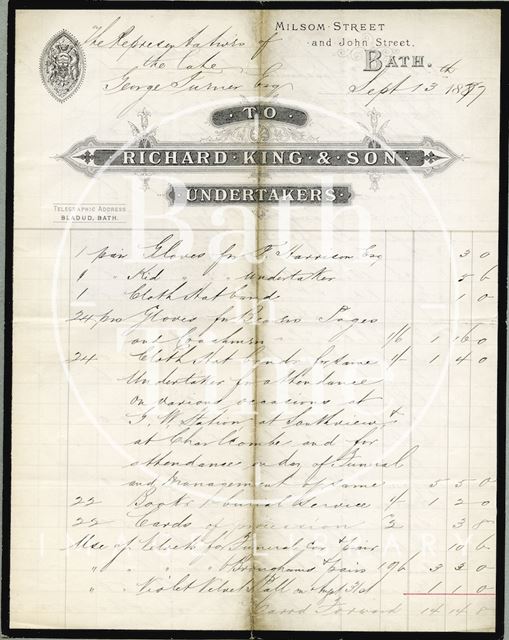 The Representatives of
the late
George Turner Esq
MILSOM STREET
and John Street,
BATH.
Sept 13th 1877
TO
RICHARD KING & SON
UNDERTAKERS
TELEGRAPHIC ADDRESS
BLADUD, BATH.
1 pair Gloves for F. Harrison Esq 3 0
1 " Kid " " Undertaker 5 6
1 Cloth Hatband 1 0
24 prs Gloves for Bearers Pages
and Coachmen 1/6 1 16 0
24 Cloth Hat bands for same 1/ 1 4 0
Undertaker for attendance
on various occasions at
G. W. Station, at Southview &
at Charlcombe and for
attendance on day of Funeral
and Management of same 5 5 0
22 Books Funeral Service 1/ 1 2 0
22 Cards of procession 2 3 8
Use of Velvets for Funeral Car & pair 10 6
" " " Broughams & pairs 10/6 3 3 0
" " Violet Velvet Pall 1 1 0
Carrd Forward 14 14 8
Bath
Time
IMAGE LIBRARY